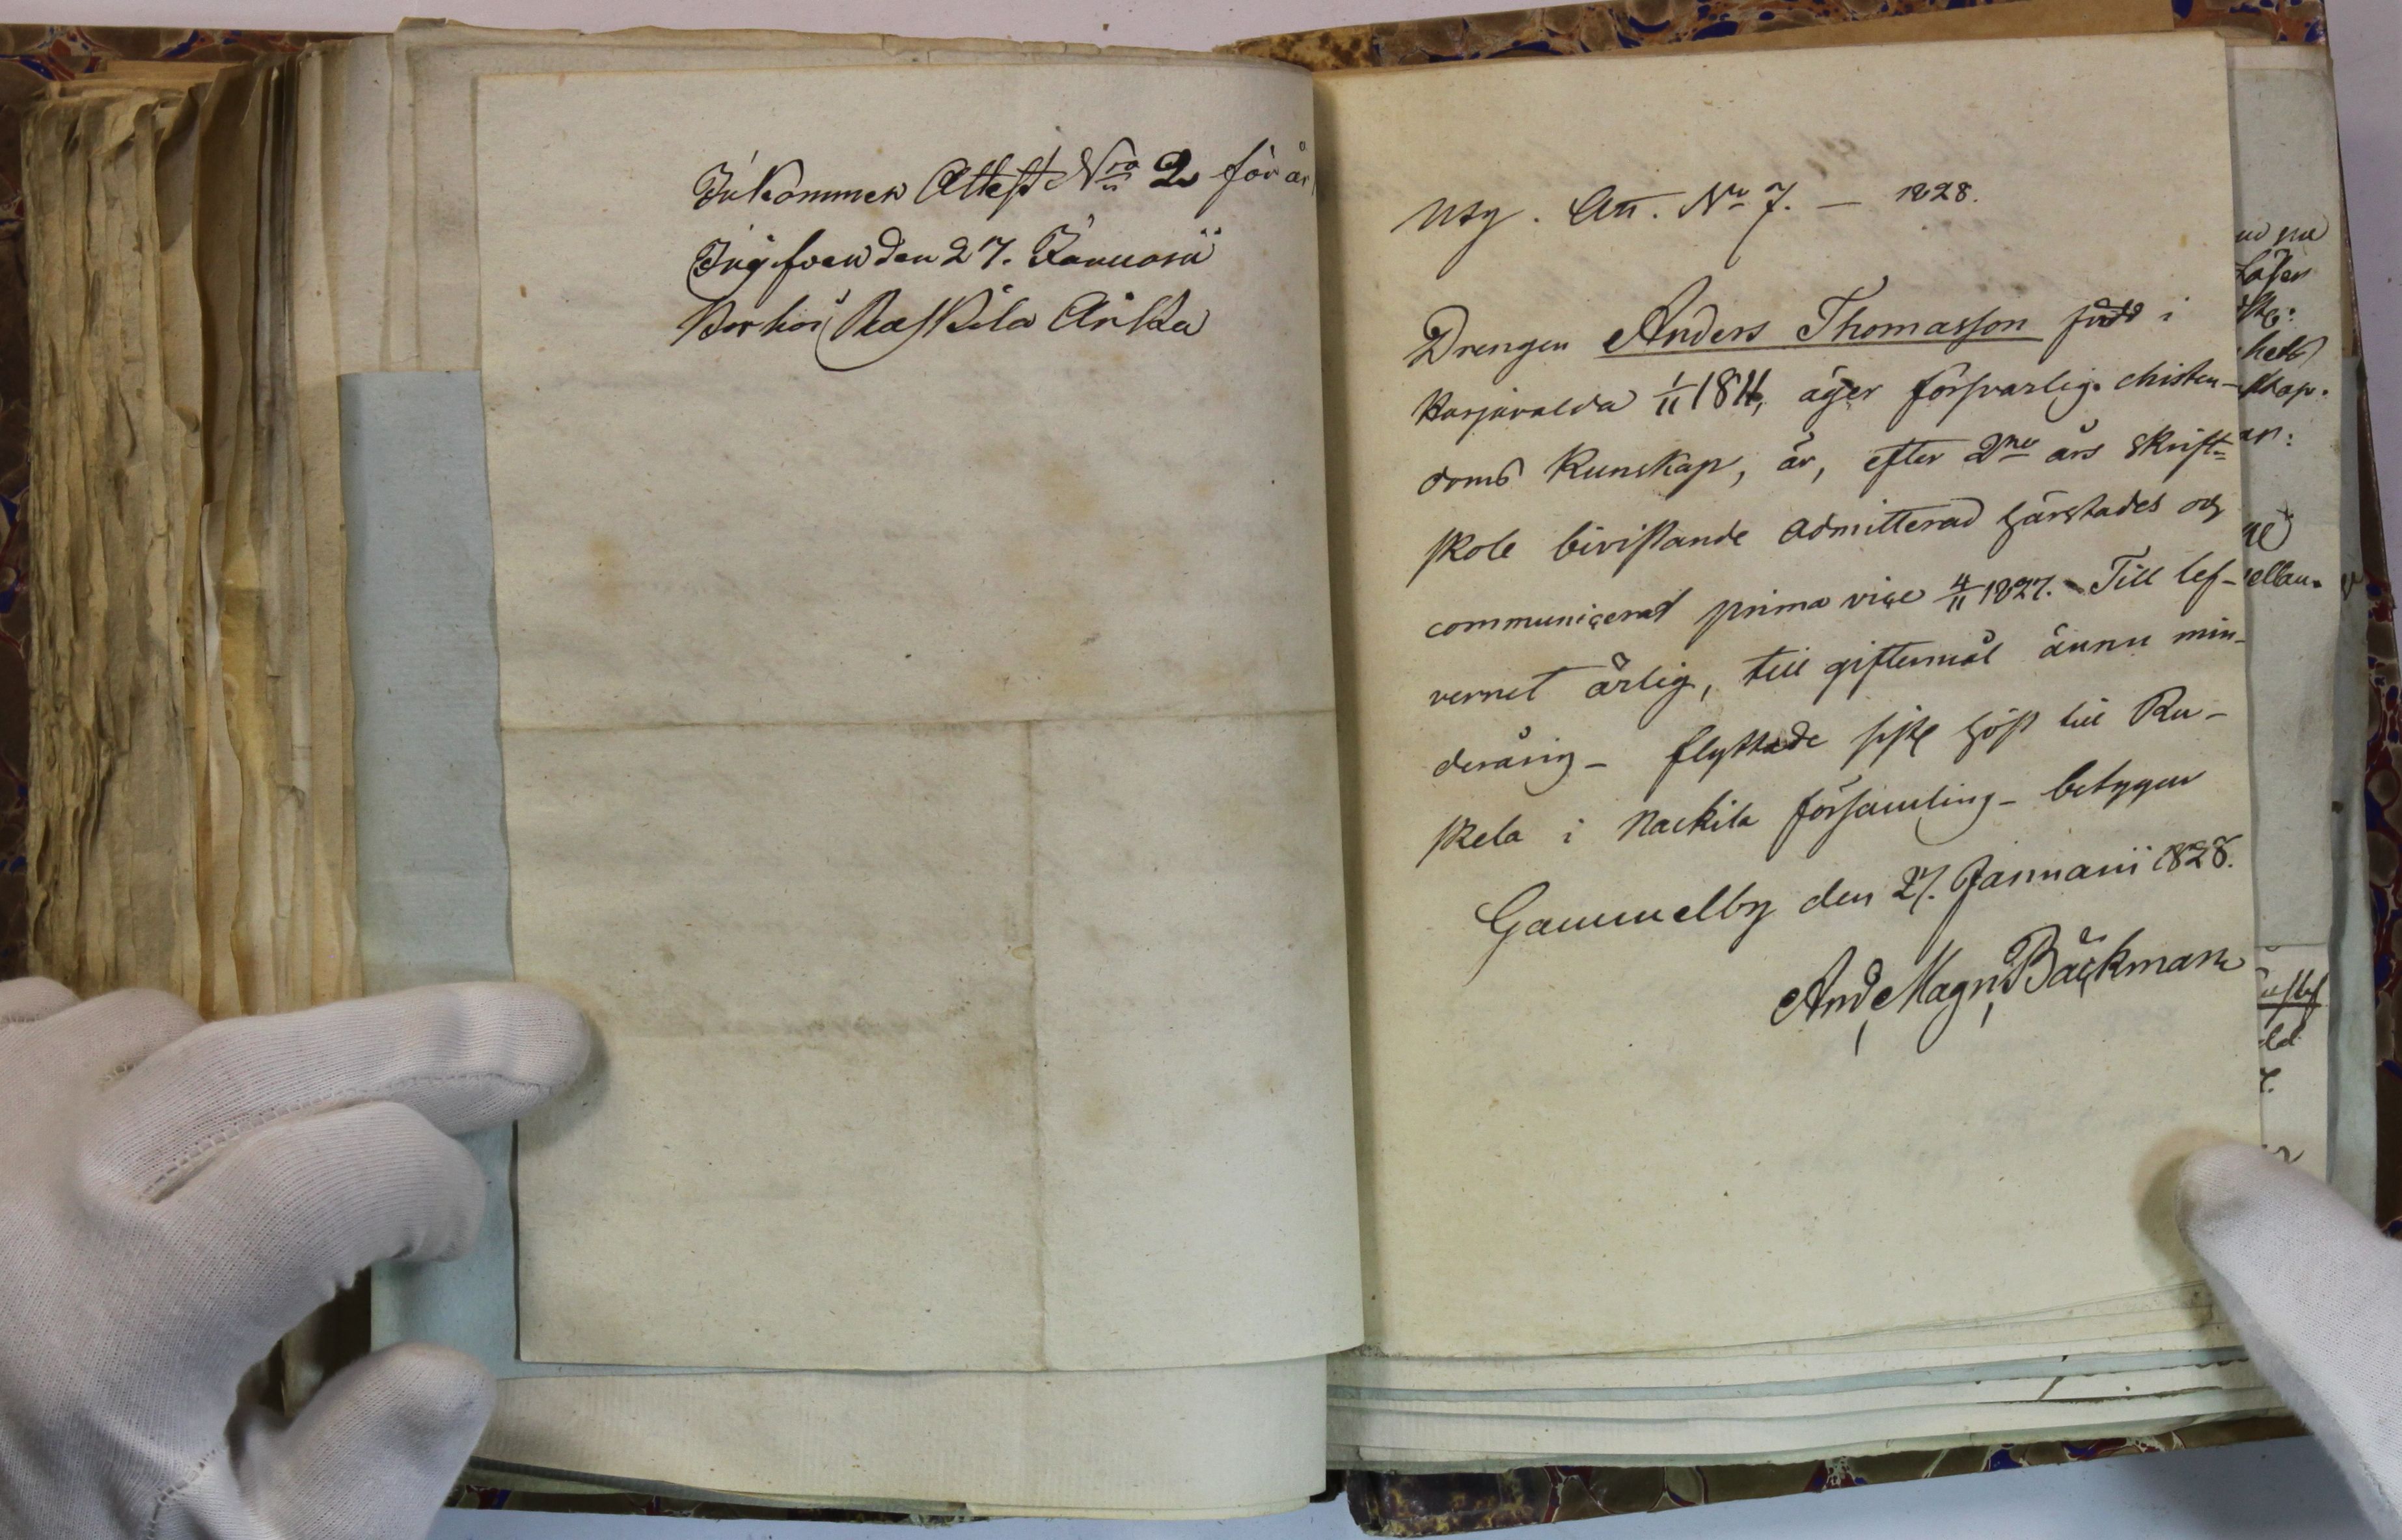 Inkommen Attest Nro 2 för år
Ingifven den 27. Januarii
Korhoi Raskila Anka
Utg. Att. No 7. — 1828.
Drengen Anders Thomasson född i
Harjavalda 1/11 1811, äger försvarlig christen-
doms kunskap, är, efter 2ne års skrift-
skole bivistande admitterad härstädes och
communicerat prima vice 4/11 1827. Till lef-
vernet ärlig, till giftermål ännu min-
derårig - flyttade sistl. höst till Ru-
skela i Nackila församling - betygar
Gammelby den 27. Januarii 1828.
And. Magn. Bäckman